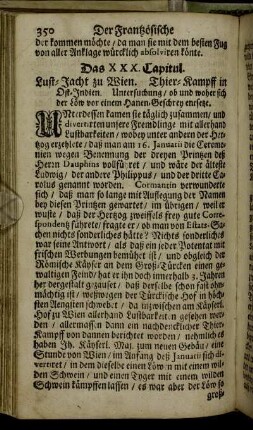 350 Der Frantzösische
der kommen möchte / da man sie mit dem besten Fug
von aller Anklage würcklich absolviren könte.
Das XXX. Capitul.
Lust-Jacht zu Wien. Thier-Kampff in
Ost-Indien. Untersuchung / ob und woher sich
der Löw vor einem Hanen-Geschrey entsetze.
UNterdessen kamen sie täglich zusammen / und
divertirten unsere Fremdlinge mit allerhand
Lustbarkeiten / wobey unter andern der Her-
tzog erzehlete / daß man am 16. Januarii die Ceremo-
nien wegen Benennung der dreyen Printzen des
Herrn Dauphins vollführet / und wäre der älteste
Ludwig / der andere Philippus / und der dritte Ca-
rolus genannt worden. Cormantin verwunderte
sich / daß man so lange mit Auflegung der Namen
bey diesen Printzen gewartet / im übrigen / weil er
wuste / daß der Hertzog zweiffels frey gute Corre-
spondentz führete / fragte er / ob man von Estats-Sa-
chen nichts sonderliches hätte? Nichts sonderliches
war seine Antwort / als daß ein jeder Potentat mit
frischen Werbungen bemühet ist / und obgleich der
Römische Käyser an dem Groß-Türcken einen ge-
waltigen Feind / hat er ihn doch innerhalb 5. Jahren
her dergestalt gezauset / daß derselbe schon fast ohn-
mächtig ist / weßwegen der Türckische Hof in höch-
sten Aengsten schwebet / da inzwischen am Käyserl.
Hof zu Wien allerhand Lustbarkeiten gesehen wer-
den / allermassen dann ein nachdencklicher Thier-
Kampff von dannen berichtet worden / nehmlich es
haben Ih. Käyserl. Maj. zum neuen Gebäu / eine
Stunde von Wien / im Anfang deß Januarii sich di-
vertiret / in dem dieselbe einen Löwn mit einem wil-
den Schwein / und einen Tyger mit einem wilden
Schwein kämpffen lassen / es war aber der Löw so
groß